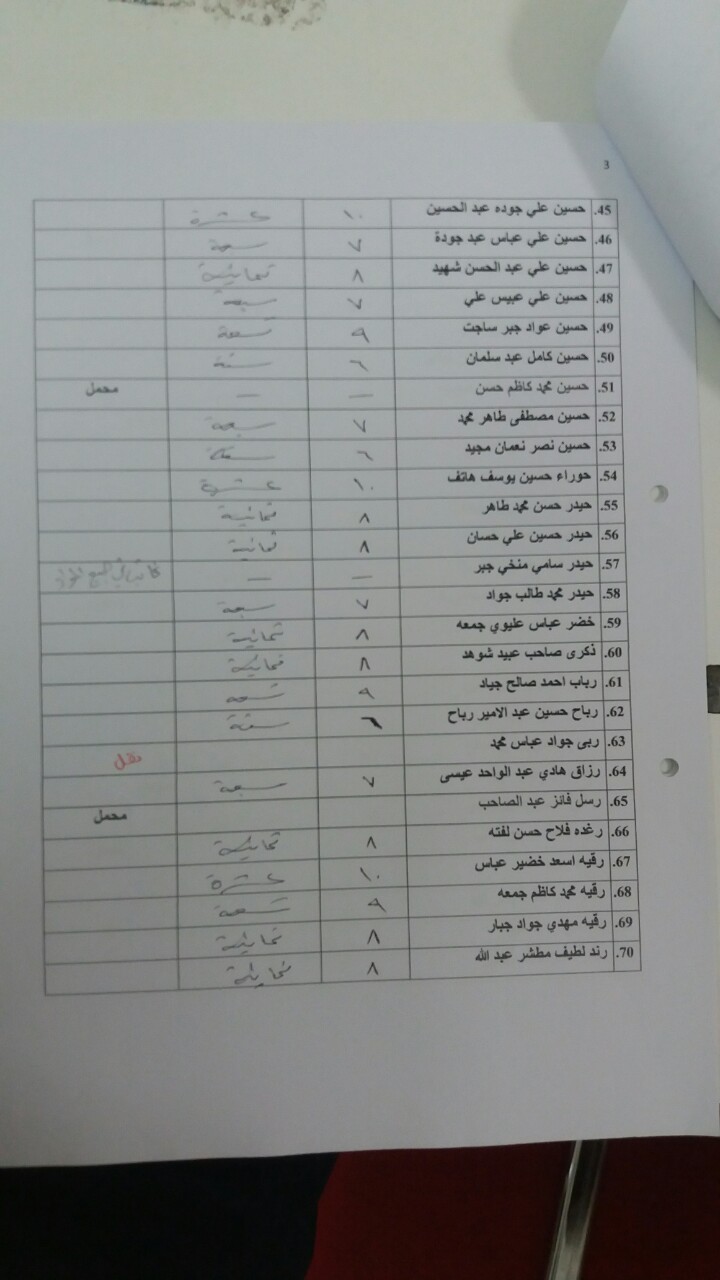 3
45. حسين علي جوده عبد الحسين ١٠ عشرة
46. حسين علي عباس عبد جودة ٧ سبعة
47. حسين علي عبد الحسن شهيد ٨ ثمانية
48. حسين علي عبيس علي ٧ سبعة
49. حسين عواد جبر ساجت ٩ تسعة
50. حسين كامل عبد سلمان ٦ ستة
51. حسين محمد كاظم حسن — — محمل
52. حسين مصطفى طاهر محمد ٧ سبعة
53. حسين نصر نعمان مجيد ٦ ستة
54. حوراء حسين يوسف هاتف ١٠ عشرة
55. حيدر حسن محمد طاهر ٨ ثمانية
56. حيدر حسين علي حسان ٨ ثمانية
57. حيدر سامي منخي جبر — —
58. حيدر محمد طالب جواد ٧ سبعة
59. خضر عباس عليوي جمعه ٨ ثمانية
60. ذكرى صاحب عبيد شوهد ٨ ثمانية
61. رباب احمد صالح جياد ٩ تسعة
62. رباح حسين عبد الامير رباح ٦ ستة
63. ربى جواد عباس محمد نقل
64. رزاق هادي عبد الواحد عيسى ٧ سبعة
65. رسل فائز عبد الصاحب محمل
66. رغده فلاح حسن لفته ٨ ثمانية
67. رقيه اسعد خضير عباس ١٠ عشرة
68. رقيه محمد كاظم جمعه ٩ تسعة
69. رقيه مهدي جواد جبار ٨ ثمانية
70. رند لطيف مطشر عبد الله ٨ ثمانية